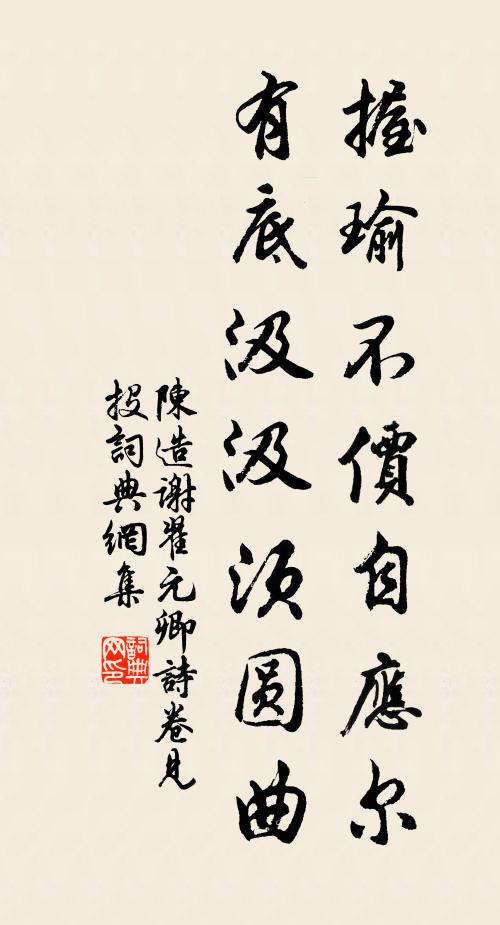 握瑜不價自應尔
有底汲汲須圆曲
陳造謝翟元卿詩卷見
投詞典網集
詞典
网印